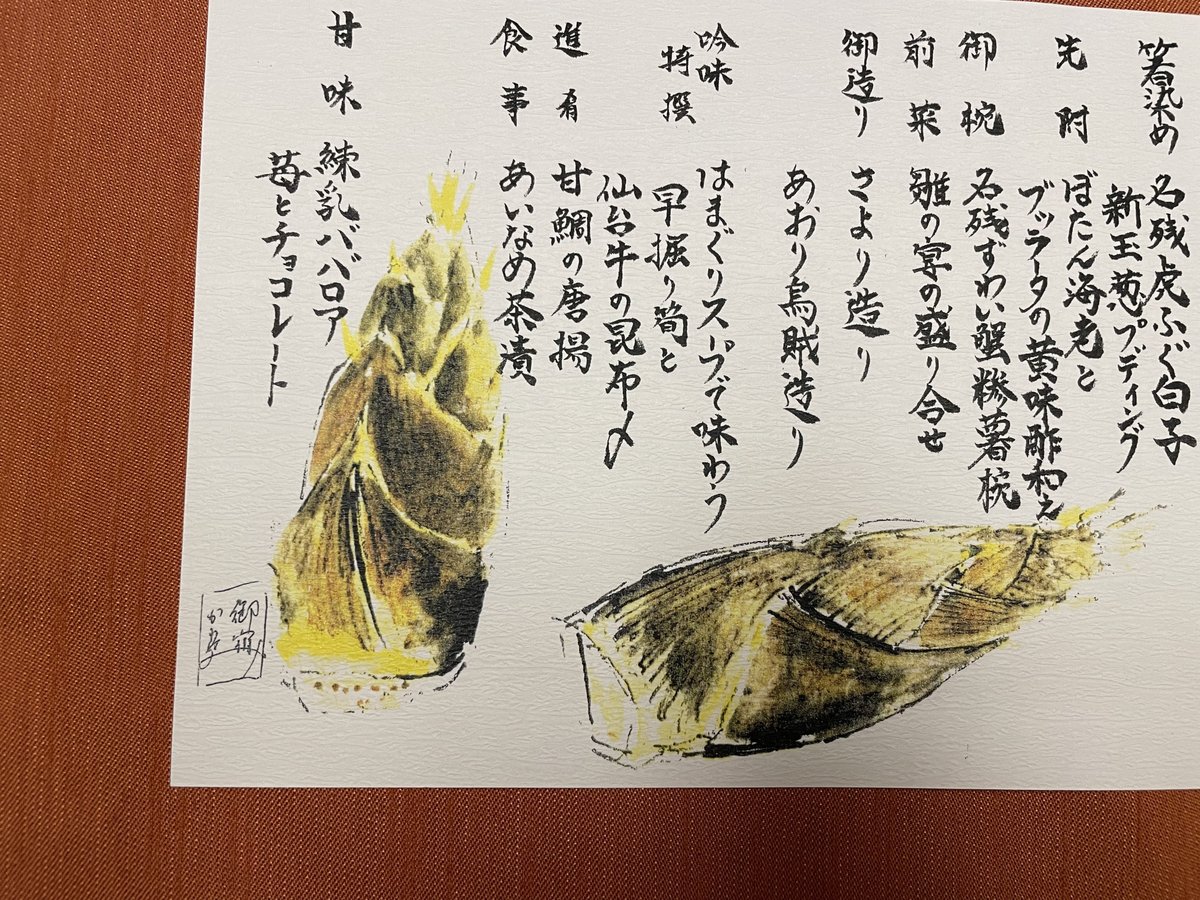 箸染め 名残虎ふぐ白子
新玉葱プディング
先附 ぼたん海老と
ブッラータの黄味酢和え
御椀 名残ずわい蟹糝薯椀
前菜 雛の宴の盛り合せ
御造り さより造り
あおり烏賊造り
吟味 はまぐりスープで味わう
特撰 早掘り筍と
仙台牛の昆布〆
進肴 甘鯛の唐揚
食事 あいなめ茶漬
甘味 練乳ババロア
苺とチョコレート
御宿
か